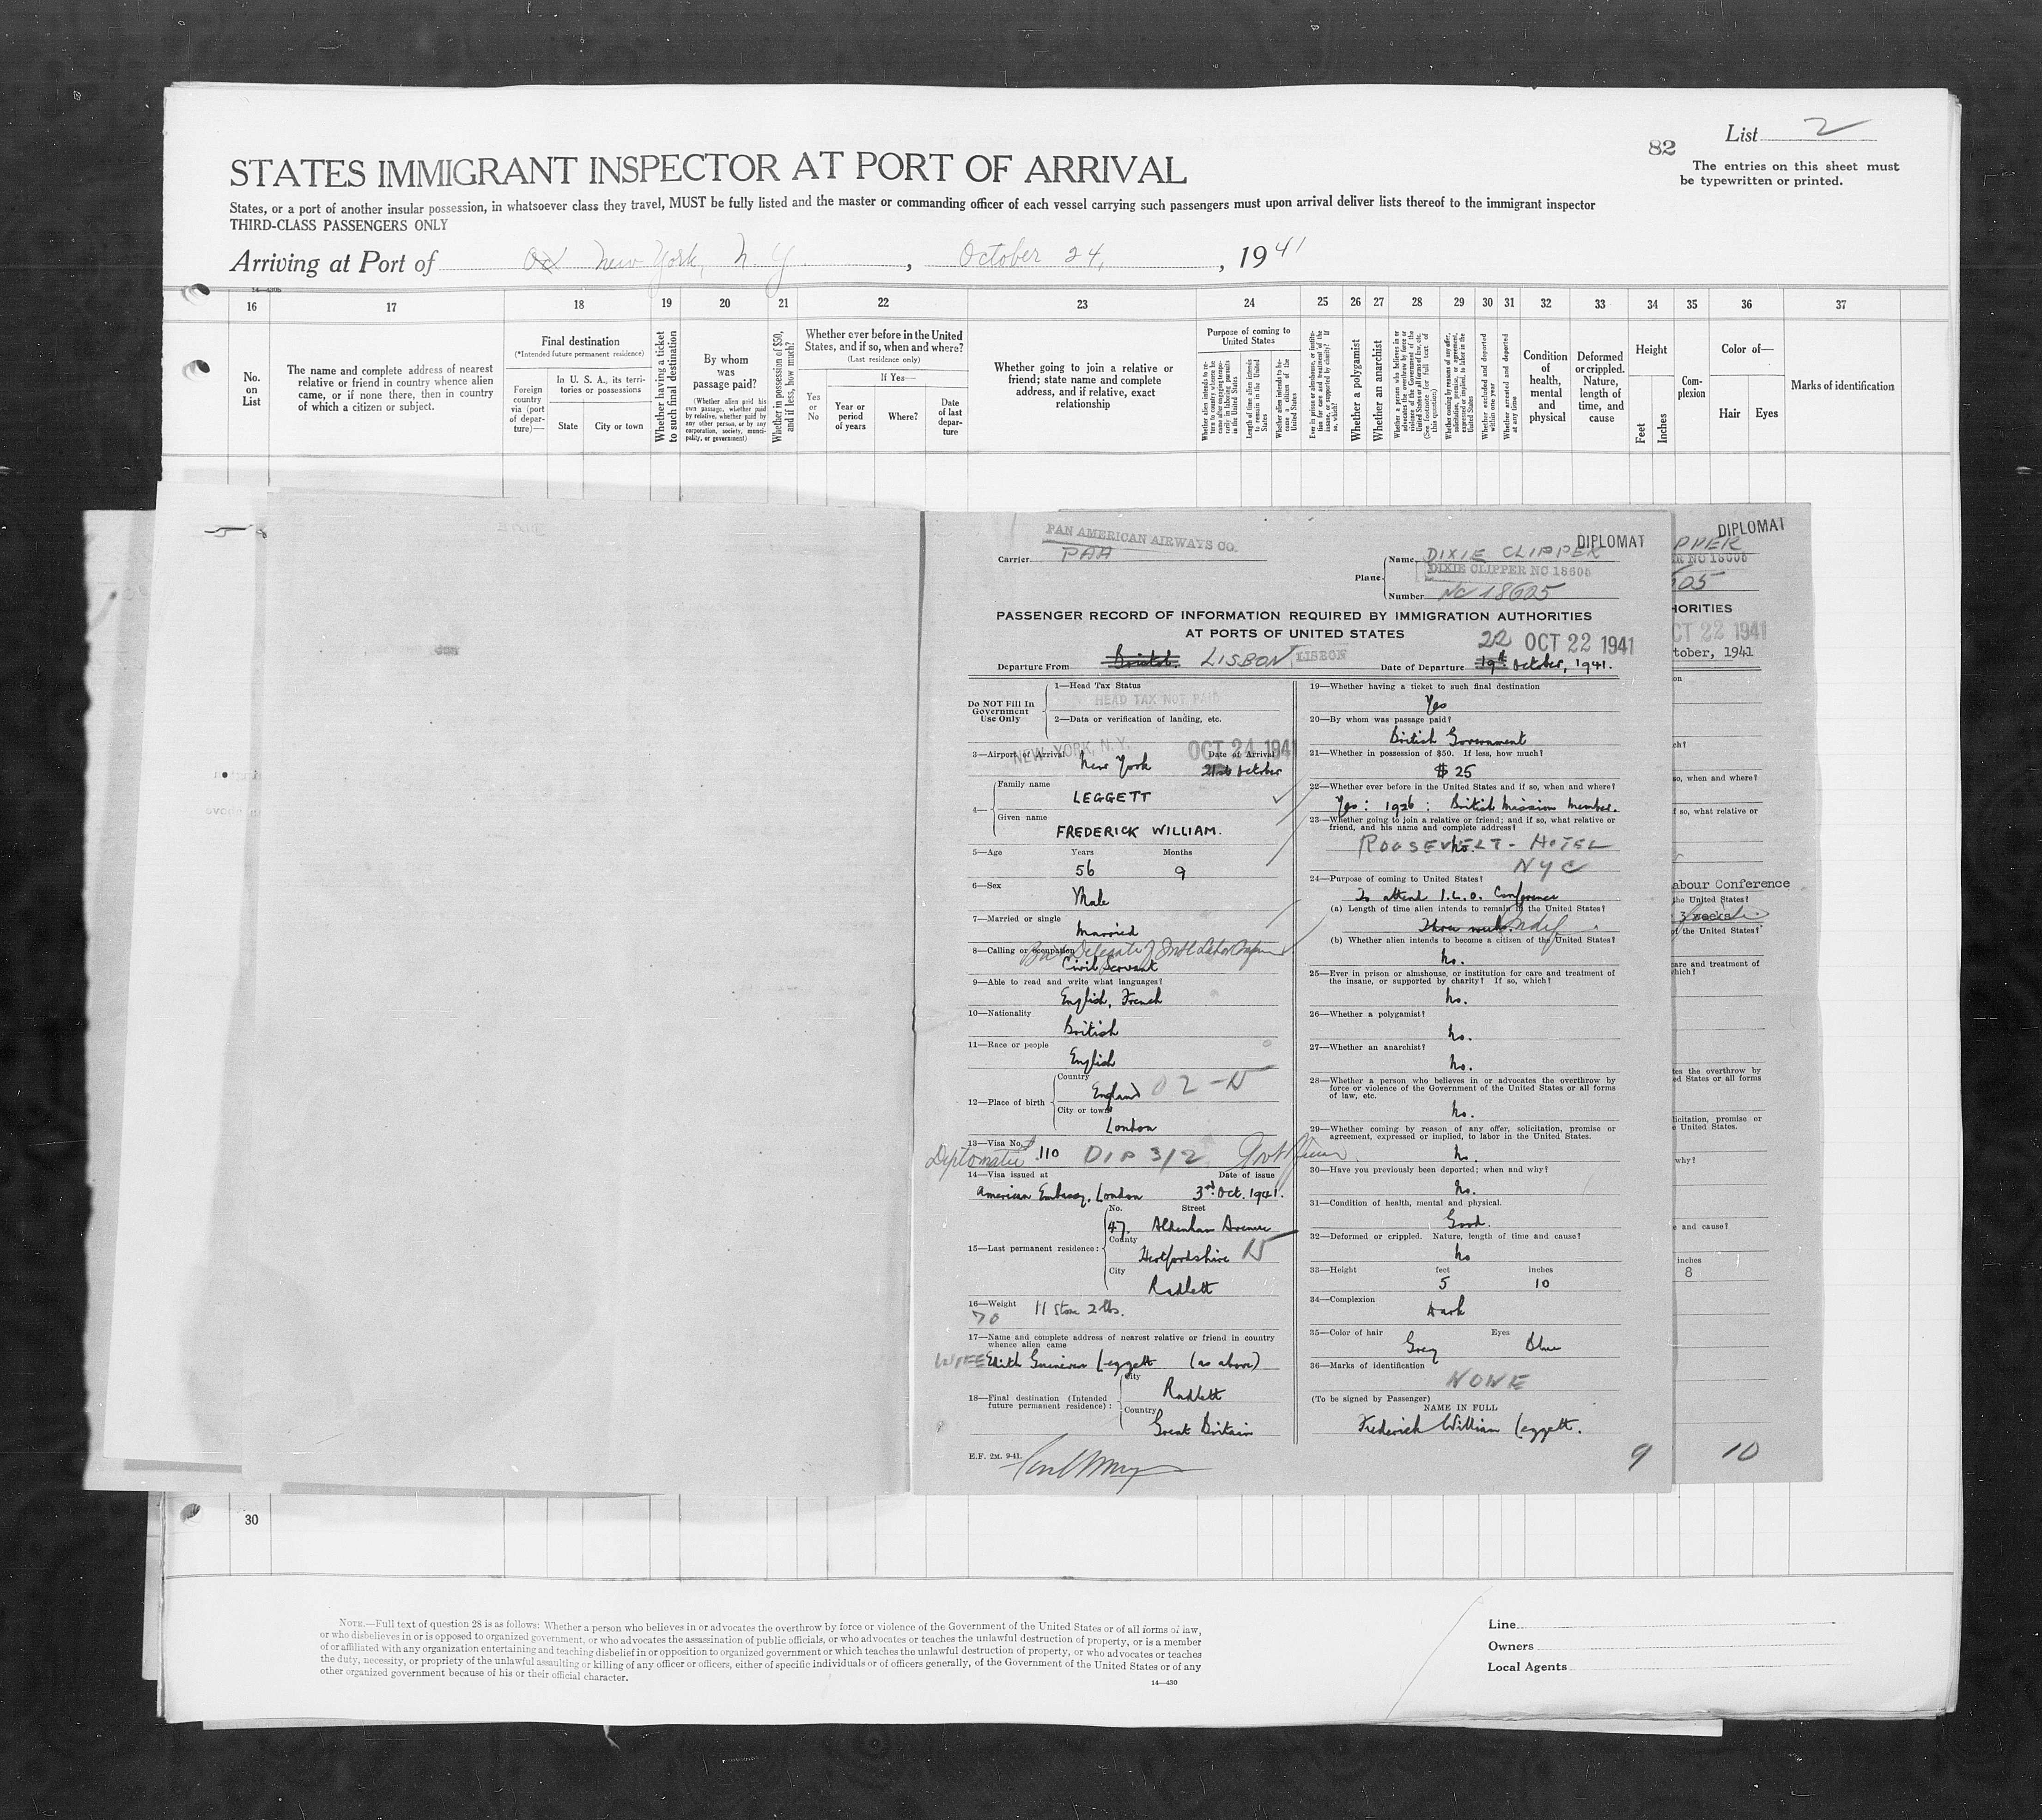 82
List 2
The entries on this sheet must
be typewritten or printed.
STATES IMMIGRANT INSPECTOR AT PORT OF ARRIVAL
States, or a port of another insular possession, in whatsoever class they travel, MUST be fully listed and the master or commanding officer of each vessel carrying such passengers must upon arrival deliver lists thereof to the immigrant inspector
THIRD-CLASS PASSENGERS ONLY
Arriving at Port of New York, N.Y., October 24, 1941
16 17 18 19 20 21 22 23 24 25 26 27 28 29 30 31 32 33 34 35 36 37
No. on List
The name and complete address of nearest
relative or friend in country whence alien
came, or if none there, then in country
of which a citizen or subject.
Final destination
(*Intended future permanent residence)
Foreign country via (port of departure)—
In U. S. A., its territories or possessions
State
City or town
Whether having a ticket to such final destination
By whom was passage paid?
(Whether alien paid his own passage, whether paid by relative, whether paid by any other person, or by any corporation, society, municipality, or government)
Whether in possession of $50, and if less, how much?
Whether ever before in the United
States, and if so, when and where?
(Last residence only)
Yes or No
If Yes—
Year or period of years
Where?
Date of last departure
Whether going to join a relative or
friend; state name and complete
address, and if relative, exact
relationship
Purpose of coming to United States
Whether alien intends to return to country whence he came after engaging temporarily in laboring pursuits in the United States
Length of time alien intends to remain in the United States
Whether alien intends to become a citizen of the United States
Ever in prison or almshouse, or institution for care and treatment of the insane, or supported by charity? If so, which?
Whether a polygamist
Whether an anarchist
Whether a person who believes in or advocates the overthrow by force or violence of the Government of the United States or all forms of law, etc. (See footnote for full text of this question)
Whether coming by reasons of any offer, solicitation, promise, or agreement, expressed or implied, to labor in the United States
Whether excluded and deported within one year
Whether arrested and deported at any time
Condition of health, mental and physical
Deformed or crippled. Nature, length of time, and cause
Height
Feet
Inches
Complexion
Color of—
Hair
Eyes
Marks of identification
PAN AMERICAN AIRWAYS CO.
Carrier PAA
DIPLOMAT
Plane
Name DIXIE CLIPPER
DIXIE CLIPPER NC 18605
Number NC 18605
PASSENGER RECORD OF INFORMATION REQUIRED BY IMMIGRATION AUTHORITIES
AT PORTS OF UNITED STATES
22 OCT 22 1941
Departure From Bristol. LISBON LISBON
Date of Departure 19th October, 1941.
Do NOT Fill In
Government
Use Only
1—Head Tax Status
HEAD TAX NOT PAID
2—Data or verification of landing, etc.
NEW YORK, N.Y.
OCT 24 1941
3—Airport of Arrival New York
Date of Arrival 21st October
4—
Family name
LEGGETT
Given name
FREDERICK WILLIAM.
5—Age Years Months
56 9
6—Sex
Male
7—Married or single
Married
8—Calling or occupation
Civil Servant
9—Able to read and write what languages?
English, French
10—Nationality
British
11—Race or people
English
12—Place of birth
Country
England
City or town
London
13—Visa No.
Diplomatic 110 DIP 3/2
14—Visa issued at Date of issue
American Embassy, London 3rd Oct. 1941.
15—Last permanent residence:
No. Street
47. Aldenham Avenue
County
Hertfordshire
City
Radlett
16—Weight 11 stone 2 lbs.
70
17—Name and complete address of nearest relative or friend in country
whence alien came
WIFE Edith Guinevere Leggett (as above)
18—Final destination (Intended
future permanent residence):
City
Radlett
Country
Great Britain
E.F. 2M. 9-41.
19—Whether having a ticket to such final destination
Yes
20—By whom was passage paid?
British Government
21—Whether in possession of $50. If less, how much?
$ 25
22—Whether ever before in the United States and if so, when and where?
Yes: 1926: British Mission Member.
23—Whether going to join a relative or friend; and if so, what relative or
friend, and his name and complete address?
No
ROOSEVELT - HOTEL
NYC
24—Purpose of coming to United States?
To attend I.L.O. Conference
(a) Length of time alien intends to remain in the United States?
Three weeks. Indef
(b) Whether alien intends to become a citizen of the United States?
No.
25—Ever in prison or almshouse, or institution for care and treatment of
the insane, or supported by charity? If so, which?
No.
26—Whether a polygamist?
No.
27—Whether an anarchist?
No.
28—Whether a person who believes in or advocates the overthrow by
force or violence of the Government of the United States or all forms
of law, etc.
No.
29—Whether coming by reason of any offer, solicitation, promise or
agreement, expressed or implied, to labor in the United States.
No.
30—Have you previously been deported; when and why?
No.
31—Condition of health, mental and physical.
Good.
32—Deformed or crippled. Nature, length of time and cause?
No
33—Height feet inches
5 10
34—Complexion
Dark
35—Color of hair Eyes
Grey Blue
36—Marks of identification
NONE
(To be signed by Passenger)
NAME IN FULL
Frederick William Leggett.
9
DIPLOMAT
PPER
R NC 18605
605
HORITIES
CT 22 1941
tober, 1941
so, when and where?
f so, what relative or
abour Conference
the United States?
3 weeks
of the United States?
care and treatment of
which?
tes the overthrow by
ed States or all forms
licitation, promise or
e United States.
why?
e and cause?
inches
8
10
30
NOTE.—Full text of question 28 is as follows: Whether a person who believes in or advocates the overthrow by force or violence of the Government of the United States or of all forms of law,
or who disbelieves in or is opposed to organized government, or who advocates the assassination of public officials, or who advocates or teaches the unlawful destruction of property, or is a member
of or affiliated with any organization entertaining and teaching disbelief in or opposition to organized government or which teaches the unlawful destruction of property, or who advocates or teaches
the duty, necessity, or propriety of the unlawful assaulting or killing of any officer or officers, either of specific individuals or of officers generally, of the Government of the United States or of any
other organized government because of his or their official character.
14—430
Line
Owners
Local Agents